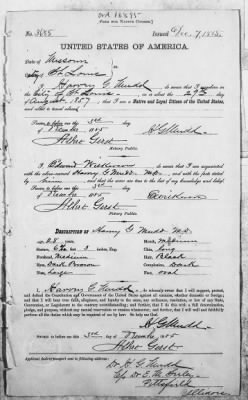 [FORM FOR NATIVE CITIZEN.]
No. 3685 Issued Dec. 7, 1885
UNITED STATES OF AMERICA.
State of Missouri
City of St. Louis
I, Harry G. Mudd, do swear that I was born in
City of St. Louis on the 29th day of
August, 1857; that I am a Native and Loyal Citizen of the United States,
and about to travel abroad.
Sworn to before me this 3rd day
of December 1885
Notary Public.
I, Edward, do swear that I am acquainted
with the above-named Harry G. Mudd M.D., and with the facts stated
by him, and that the same are true to the best of my knowledge and belief.
Sworn to before me this 3rd day
of December 1885
Notary Public.
DESCRIPTION OF Harry G. Mudd M.D.
Age, 28 years. Mouth, medium
Stature, feet inches, Eng. Chin, long
Forehead, medium Hair, Black
Eyes, Dark Brown Complexion, Dark
Nose, Large Face, oval
I, Harry G. Mudd, do solemnly swear that I will support, protect,
and defend the Constitution and Government of the United States against all enemies, whether domestic or foreign;
and that I will bear true faith, allegiance, and loyalty to the same, any ordinance, resolution, or law of any State,
Convention, or Legislature to the contrary notwithstanding; and further, that I do this with a full determination,
pledge, and purpose, without any mental reservation or evasion whatsoever; and further, that I will well and faithfully
perform all the duties which may be required of me by law. So help me God.
H G Mudd
Sworn to before me this 3rd day of December 1885
Applicant desires passport sent to following address:
Dr. H. G. Mudd
Pittsfield
Illinois